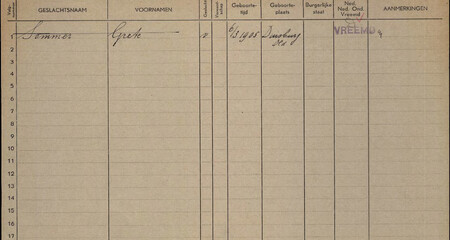 Volg- GESLACHTSNAAM VOORNAMEN Geslacht Geboorte-tijd Geboorte-plaats Burgerlijke staat Ned. Ned. Ond. Vreemd. AANMERKINGEN
1 Sommer Grete 6/3 1905 Duisburg VREEMD
2
3
4
5
6
7
8
9
10
11
12
13
14
15
16
17